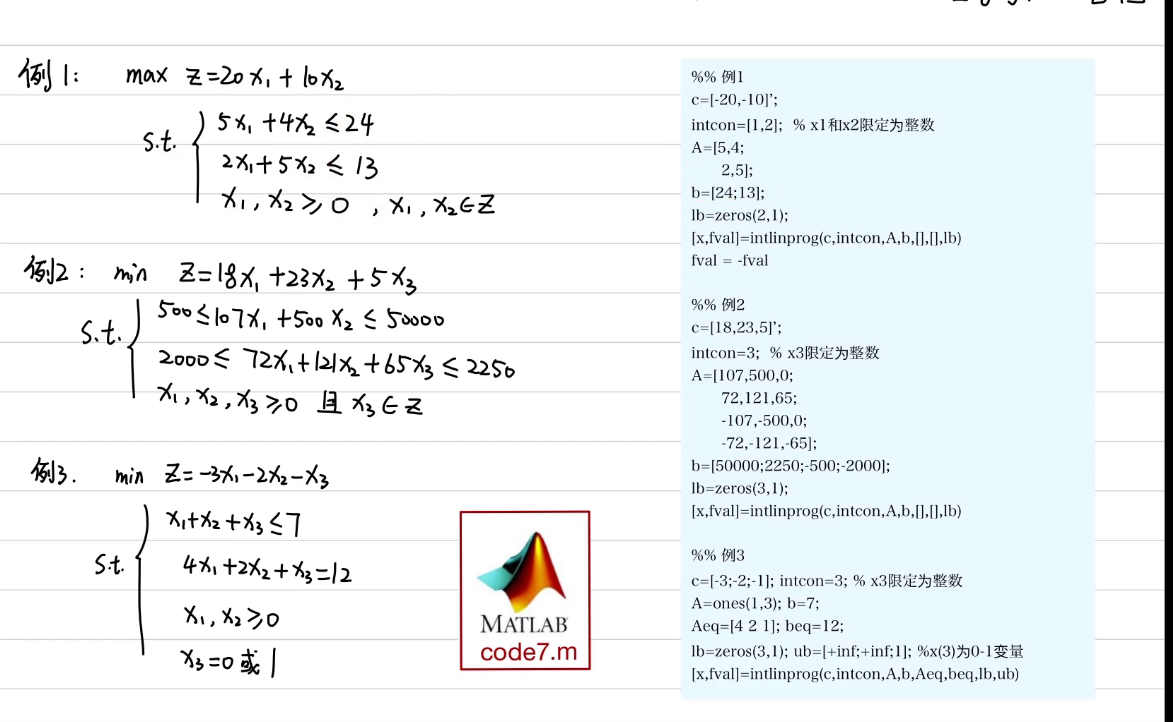 例1: max z=20x₁+10x₂
s.t.
5x₁+4x₂≤24
2x₁+5x₂≤13
x₁,x₂≥0,x₁,x₂∈Z
例2: min z=18x₁+23x₂+5x₃
s.t.
500≤107x₁+500x₂≤50000
2000≤72x₁+121x₂+65x₃≤2250
x₁,x₂,x₃≥0 且 x₃∈Z
例3. min z=-3x₁-2x₂-x₃
s.t.
x₁+x₂+x₃≤7
4x₁+2x₂+x₃=12
x₁,x₂≥0
x₃=0或1
MATLAB
code7.m
%% 例1
c=[-20,-10]’;
intcon=[1,2]; % x1和x2限定为整数
A=[5,4;
2,5];
b=[24;13];
lb=zeros(2,1);
[x,fval]=intlinprog(c,intcon,A,b,[],[],lb)
fval = -fval
%% 例2
c=[18,23,5]’;
intcon=3; % x3限定为整数
A=[107,500,0;
72,121,65;
-107,-500,0;
-72,-121,-65];
b=[50000;2250;-500;-2000];
lb=zeros(3,1);
[x,fval]=intlinprog(c,intcon,A,b,[],[],lb)
%% 例3
c=[-3;-2;-1]; intcon=3; % x3限定为整数
A=ones(1,3); b=7;
Aeq=[4 2 1]; beq=12;
lb=zeros(3,1); ub=[+inf;+inf;1]; %x(3)为0-1变量
[x,fval]=intlinprog(c,intcon,A,b,Aeq,beq,lb,ub)